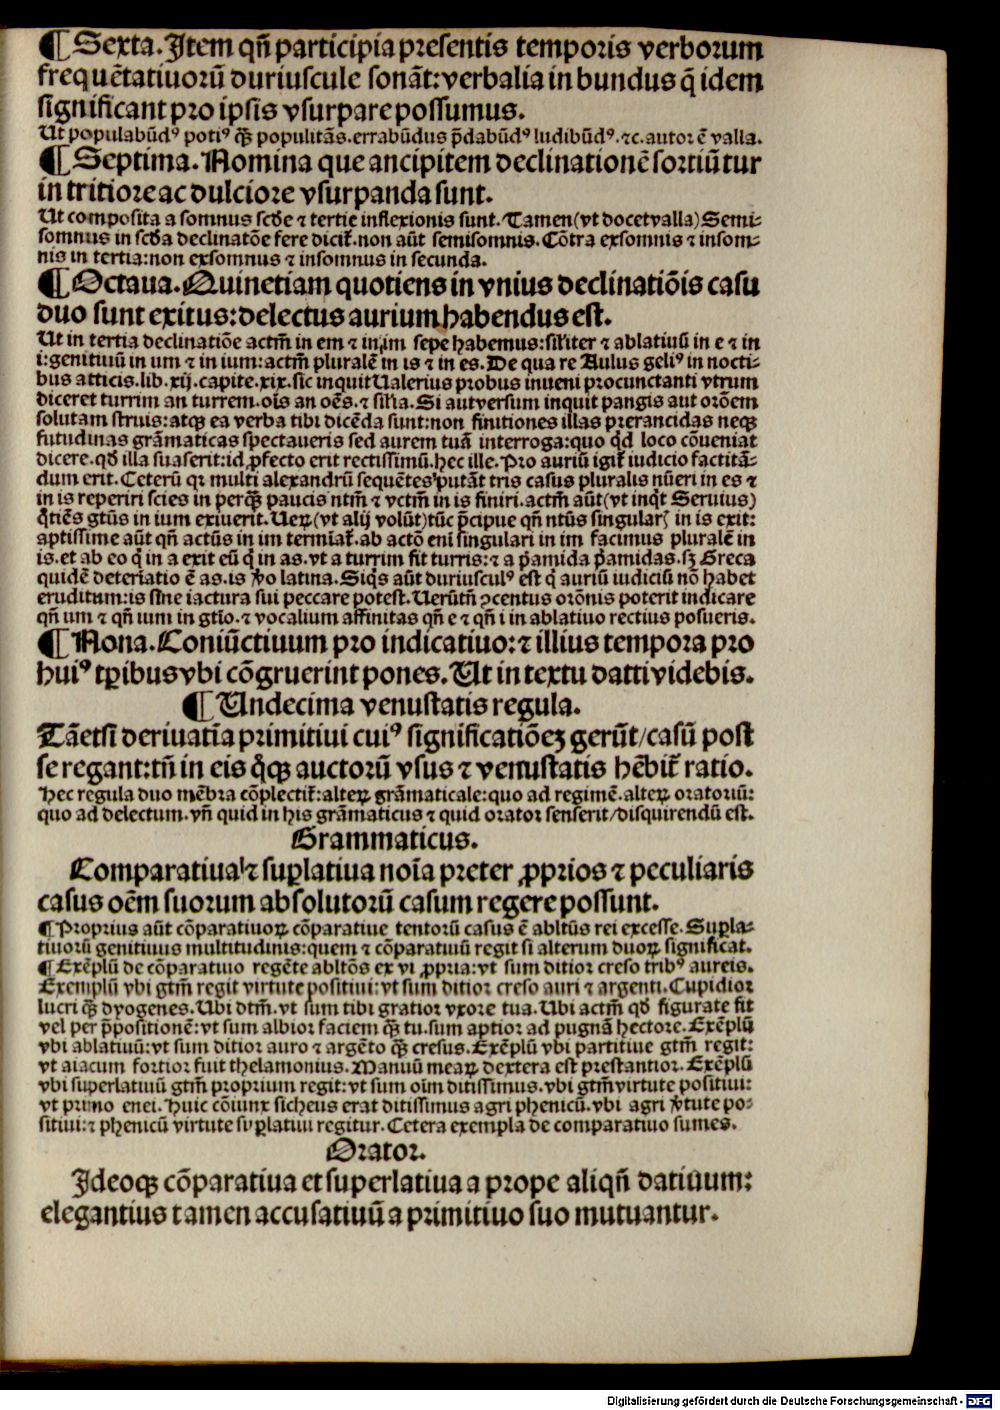 ¶ Sexta. Item qn̄ participia presentis temporis verborum
frequētatiuorū duriuscule sonāt: verbalia in bundus q̄ idem
significant pro ipsis vsurpare possumus.
Ut populabūdꝰ potiꝰ qꝫ̄ populitās. errabūdus p̄dabūdꝰ ludibūdꝰ. ⁊c. autor ē valla.
¶ Septima. Nomina que ancipitem declinationē sortiūtur
in tritiore ac dulciore vsurpanda sunt.
Ut composita a somnus scd̄e ⁊ tertie inflexionis sunt. Tamen (vt docet valla) Semi-
somnus in scd̄a declinatōe fere dicit̄. non aūt semisomnis. Cōtra exsomnis ⁊ insom-
nis in tertia: non exsomnus ⁊ insomnus in secunda.
¶ Octaua. Quinetiam quotiens in vnius declinatiōis casu
duo sunt exitus: delectus aurium habendus est.
Ut in tertia declinatiōe actm̄ in em ⁊ in im sepe habemus: sil'iter ⁊ ablatiuū in e ⁊ in
i: genitiuū in um ⁊ in ium: actm̄ pluralē in is ⁊ in es. De qua re Aulus geliꝰ in nocti-
bus atticis. lib. xij. capite. xix. sic inquit Ualerius probus inueni procunctanti vtrum
diceret turrim an turrem. oīs an oēs. ⁊ sil'ia. Si aut versum inquit pangis aut orōem
solutam struis: atqꝫ ea verba tibi dicēda sunt: non finitiones illas prerancidas neqꝫ
futudinas grāmaticas spectaueris sed aurem tuā interroga: quo qd̄ loco cōueniat
dicere. qd̄ illa suaserit: id ꝓfecto erit rectissimū. hec ille. Pro auriū igit̄ iudicio factitā-
dum erit. Ceterū qꝛ multi alexandrū sequētes putāt tris casus pluralis nūeri in es ⁊
in is reperiri scies in perqꝫ̄ paucis ntm̄ ⁊ vctm̄ in is finiri. actm̄ aūt (vt inqt Seruius)
q̄tiēs gtūs in ium exiuerit. Ueꝝ (vt alij volūt) tūc p̄cipue qn̄ ntūs singularꝭ in is exit:
aptissime aūt qn̄ actūs in im termiat̄. ab actō eni singulari in im facimus pluralē in
is. et ab eo q̄ in a exit eū q̄ in as. vt a turrim fit turris: ⁊ a p̄amida p̄amidas. sꝫ Greca
quidē deteriatio ē as. is ꝟo latina. Siqs aūt duriusculꝰ est q̄ auriū iudiciū nō habet
eruditum: is sine iactura sui peccare potest. Uerūtn̄ ɔcentus orōnis poterit indicare
qn̄ um ⁊ qn̄ ium in gtīo. ⁊ vocalium affinitas qn̄ e ⁊ qn̄ i in ablatiuo rectius posueris.
¶ Nona. Coniūctiuum pro indicatiuo: ⁊ illius tempora pro
huiꝰ tp̄ibus vbi cōgruerint pones. Ut in textu datti videbis.
¶ Undecima venustatis regula.
Tāetsi deriuatīa primitiui cuiꝰ significatiōeꝫ gerūt/casū post
se regant: tn̄ in eis qꝗꝫ auctorū vsus ⁊ venustatis hēbit̄ ratio.
Hec regula duo mēbra cōplectit̄: alteꝝ grāmaticale: quo ad regimē. alteꝝ oratoriū:
quo ad delectum. vn̄ quid in his grāmaticus ⁊ quid orator senserit/disquirendū est.
Grammaticus.
Comparatiua ⁊ suꝑlatiua noīa preter ꝓprios ⁊ peculiaris
casus oēm suorum absolutorū casum regere possunt.
¶ Proprius aūt cōparatiuoꝝ cōparatiue tentorū casus ē abltūs rei excesse. Suꝑla-
tiuorū genitiuus multitudinis: quem ⁊ cōparatiuū regit si alterum duoꝝ significat.
¶ Exēplū de cōparatiuo regēte abltōs ex vi ꝓpria: vt sum ditior creso tribꝰ aureis.
Exemplū vbi gtm̄ regit virtute positiui: vt sum ditior creso auri ⁊ argenti. Cupidior
lucri qꝫ̄ dyogenes. Ubi dtm̄. vt sum tibi gratior vxore tua. Ubi actm̄ qd̄ figurate fit
vel per p̄positionē: vt sum albior faciem qꝫ̄ tu. sum aptior ad pugnā hectore. Exēplū
vbi ablatiuū: vt sum ditior auro ⁊ argēto qꝫ̄ cresus. Exēplū vbi partitiue gtm̄ regit:
vt aiacum fortior fuit thelamonius. Manuū meaꝝ dextera est prestantior. Exēplū
vbi superlatiuū gtm̄ proprium regit: vt sum oīm ditissimus. vbi gtm̄ virtute positiui:
vt primo enei. Huic cōiunx sicheus erat ditissimus agri phenicū. vbi agri ꝟtute po-
sitiui: ⁊ phenicū virtute suꝑlatiui regitur. Cetera exempla de comparatiuo sumes.
Orator.
Ideoqꝫ cōparatiua et superlatiua a prope aliqn̄ datiuum:
elegantius tamen accusatiuū a primitiuo suo mutuantur.
Digitalisierung gefördert durch die Deutsche Forschungsgemeinschaft - DFG